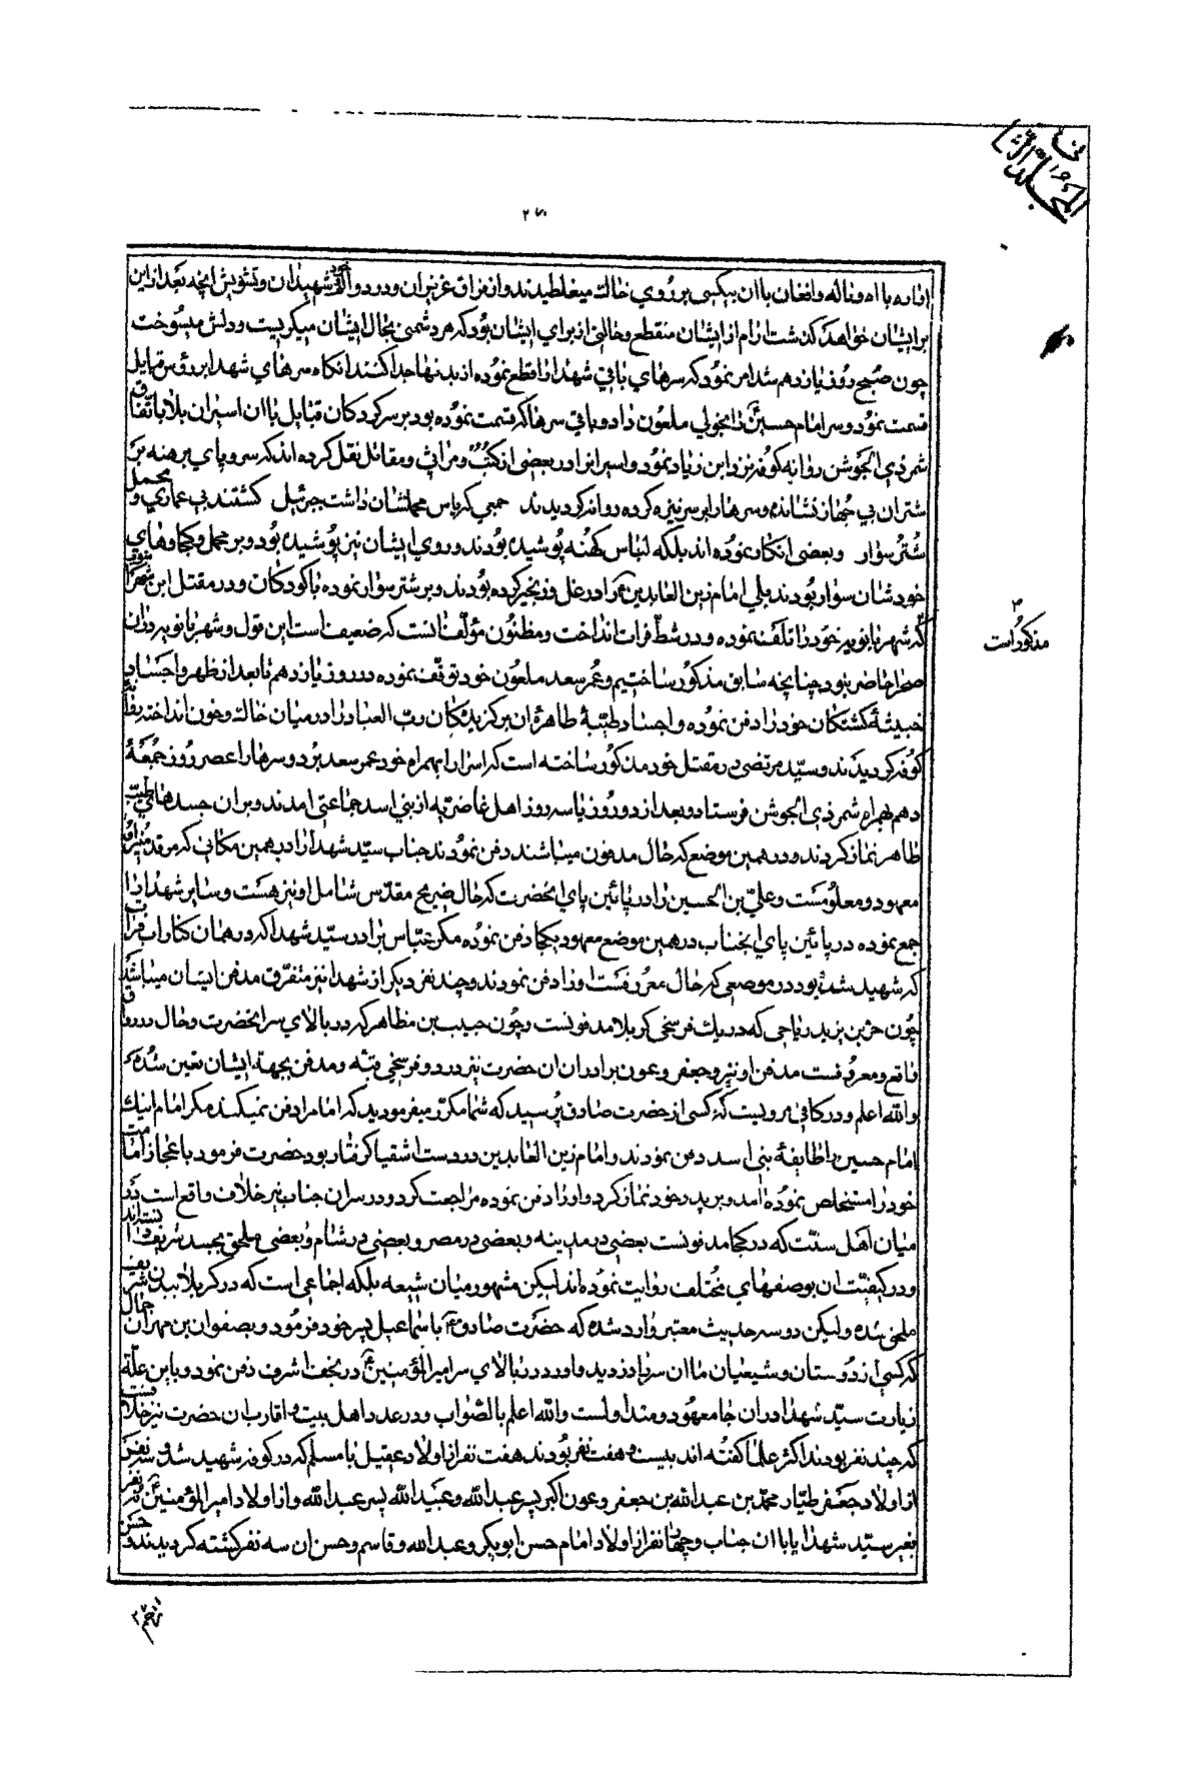 المجلد الثانی
۲۷۰
اراده با اه و ناله و افغان با ان بیکسی بر روی خاك میغلطیدند و از فراق عزیزان و درد و الم شهیدان و تشویش انچه بعد از این
بر ایشان خواهد گذشت ارام از ایشان منقطع و حالتی از برای ایشان بود که هر دشمنی بحال ایشان میگریست و دلش میسوخت
چون صبح روز یازدهم شد امر نمود که سرهای باقی شهدا را قطع نموده از بدنها جدا کنند انگاه سرهای شهدا بر رؤس قبایل
قسمت نمود و سر امام حسین را بخولی ملعون داد و باقی سرها که قسمت نموده بود بر سرکردگان قبایل با ان اسیران بلا باتفاق
شمر ذی الجوشن روانه کوفه نزد ابن زیاد نمود و اسیرانرا در بعضی از کتب و مراثی و مقاتل نقل کرده اند که سر و پای برهنه بر
شتران بی جهاز نشانده و سرها را بر سر نیزه کرده روانه کردیدند جمعی که پاس محملشان داشت جبرئیل گشتند بی عماری و محمل
شتر سوار و بعضی انکار نموده اند بلکه لباس کهنه پوشیده بودند و روی ایشان نیز پوشیده بود و بر محمل و کجاوهای
خودشان سوار بودند بلی امام زین العابدین را در غل و زنجیر کرده بودند و بر شتر سوار نموده با کودکان و در مقتل ابن شهراشوب
مذکور است
که شهر بانو نیز خود را تلف نموده و در شط فرات انداخت و مظنون مؤلف انست که ضعیف است این قول و شهر بانو نیز در ان
صحرا حاضر نبود چنانچه سابق مذکور ساختیم و عمر سعد ملعون خود توقف نموده در روز یازدهم تا بعد از ظهر و اجساد
خبیثهٔ کشتگان خود را دفن نموده و اجساد طیّبهٔ طاهرهٔ ان برگزیدگان رب العباد را در میان خاك و خون انداخته روانه
کوفه گردیدند و سیّد مرتضی در مقتل خود مذکور ساخته است که اسرا را بهمراه خود عمر سعد برد و سرها را عصر روز جمعهٔ
دهم بهمراه شمر ذی الجوشن فرستاد و بعد از دو روز یا سه روز اهل غاضریه از بنی اسد جماعتی امدند و بران جسدهای طیّب
طاهر نماز کردند و در همین موضع که حال مدفون میباشند دفن نمودند جناب سیّد شهدا را در همین مکانی که مرقد
معهود و معلومست و علی بن الحسین را در پائین پای انحضرت که حال ضریح مقدّس شامل او نیز هست و سایر شهدا را
جمع نموده در پائین پای انجناب در همین موضع معهود یکجا دفن نموده مگر عبّاس برادر سیّد شهدا که در همان کنار اب فرات
که شهید شده بود در موضعی که حال معروفست او را دفن نمودند و چند نفر دیگر از شهدا نیز متفرّق مدفن ایشان میباشد
چون حرّ بن یزید ریاحی که در یك فرسخی کربلا مدفونست و چون حبیب بن مظاهر که در بالای سر انحضرت و حال در رواق
واقع و معروفست مدفن او نیز و جعفر و عون برادران ان حضرت نیز در دو فرسخی قبّه و مدفن بجهة ایشان تعین شده
والله اعلم و در کافی مرویست که کسی از حضرت صادق پرسید که شما مکرّر میفرمودید که امام را دفن نمیکند مگر امام اینك
امام حسین را طایفهٔ بنی اسد دفن نمودند و امام زین العابدین در دست اشقیا گرفتار بود حضرت فرمود باعجاز امامت
خود را مستخلص نموده امد و بر پدر خود نماز کرد و او را دفن نموده مراجعت کرد و در سر ان جناب نیز خلاف واقع است
میان اهل سنّت که در کجا مدفونست بعضی در مدینه و بعضی در مصر و بعضی در شام و بعضی ملحق بجسد شریف
و در کیفیّت ان بوصفهای مختلف روایت نموده اند لیکن مشهور میان شیعه بلکه اجماعی است که در کربلا ببدن شریف
ملحق شده ولیکن دو سه حدیث معتبر وارد شده که حضرت صادق با اسماعیل پسر خود فرمود و بصفوان بن مهران جمال
که کسی از دوستان و شیعیان ما ان سر را دزدید و اورد در بالای سر امیر المؤمنین در نجف اشرف دفن نمود و باین علّة
زیارت سیّد شهدا در ان جا معهود و متداولست والله اعلم بالصّواب و در عدد اهل بیت و اقارب ان حضرت نیز خلافست
که چند نفر بودند اکثر علما گفته اند بیست و هفت نفر بودند هفت نفر از اولاد عقیل با مسلم که در کوفه شهید شد و سه نفر
از اولاد جعفر طیّار محمّد بن عبدالله بن جعفر و عون اکبر پسر عبدالله و عبیدالله پسر عبدالله و از اولاد امیر المؤمنین نه نفر
بغیر سیّد شهدا یا با ان جناب و چهار نفر از اولاد امام حسن ابوبکر و عبدالله و قاسم و حسن ان سه نفر کشته گردیدند و حسن